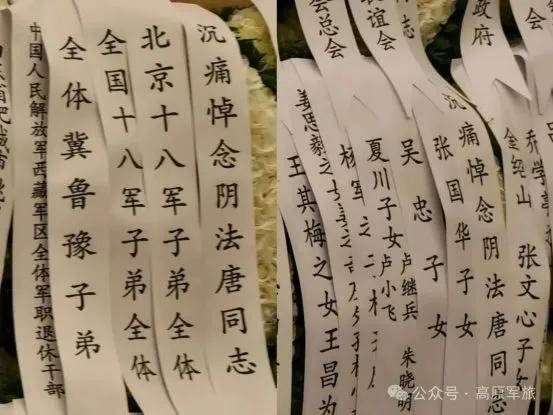 沉痛悼念阴法唐同志
北京十八军子弟全体
全国十八军子弟全体
全体冀鲁豫子弟
中国人民解放军西藏军区全体军职退休干部
政府
志
谊会
会总会
乔学亭
张文心子女
金绍山
沉痛悼念阴法唐同志
张国华子女
吴忠子女
卢继兵
朱晓明
夏川子女
卢小飞
杨军之
姜思毅之
王其梅之女王昌为
公众号·高原军旅